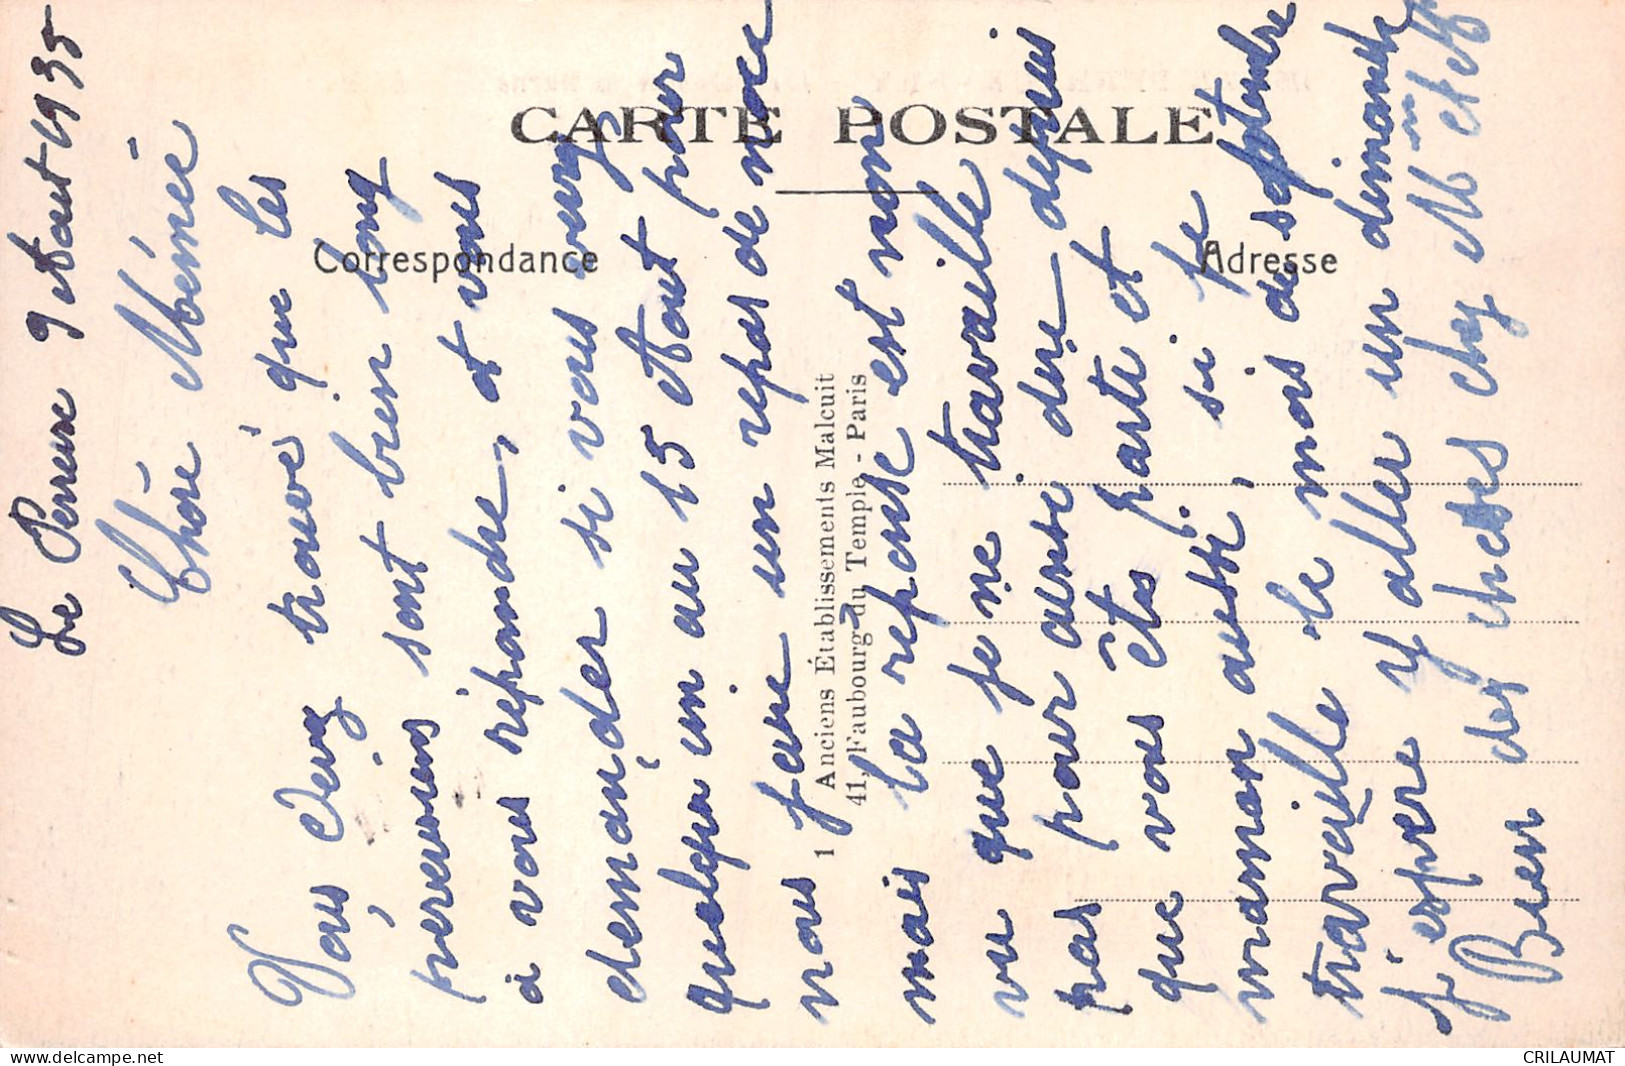 CARTE POSTALE
Correspondance
Adresse
1 Anciens Établissements Malcuit
41, Faubourg du Temple - Paris
Le Perreux 9 Aout 1935
Chère Mémée
Vous devez trouvé que les
pérreuviens sont bien long
à vous répondre, et vous
demander si vous vous
quelqu'un au 15 Aout pour
nous faire un repas de noce
mais la reponse est non
vu que je ne travaille
pas pour ainsi dire depuis
que vous êtes parte et
maman aussi, si je
travaille le mois de septembre
j'espère y aller un dimanche
Bien des choses chez Mr et Mme